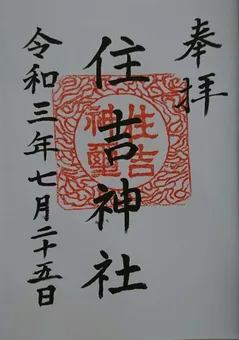 奉拝
住吉神社
住吉
神璽
令和三年七月二十五日